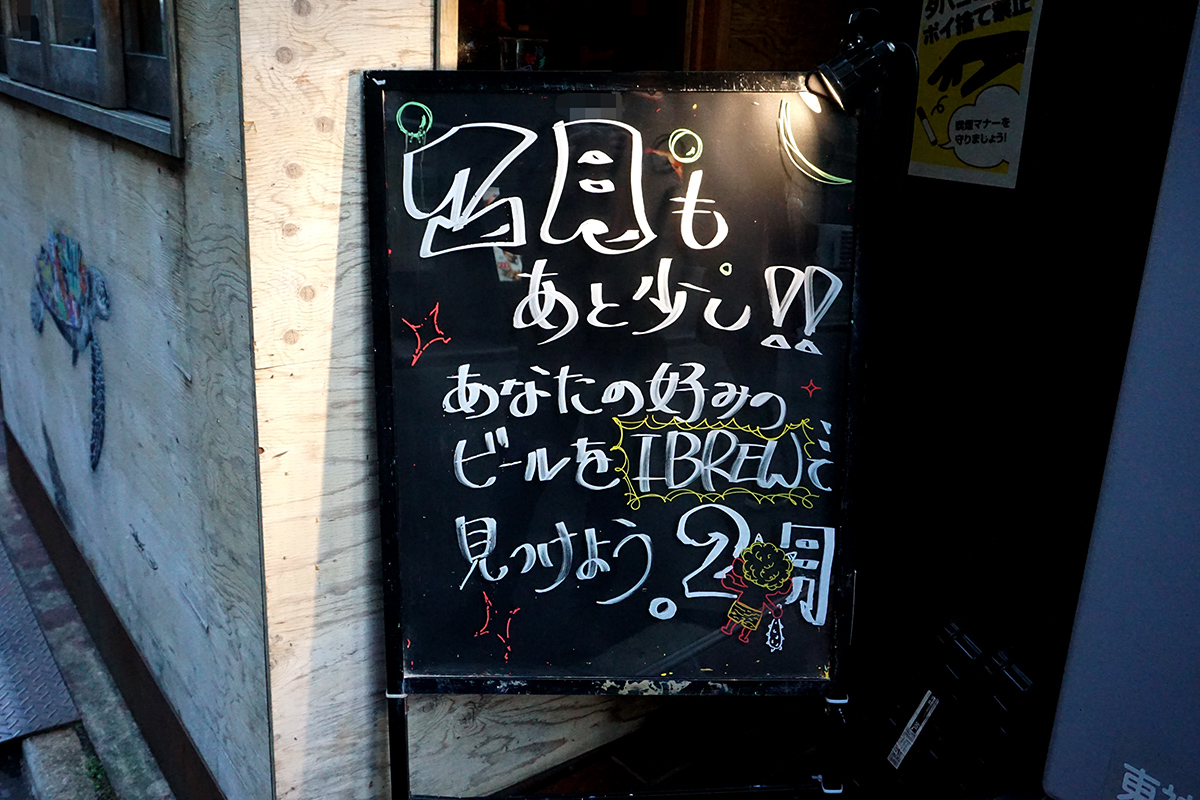 2月も
あと少し!!
あなたの好みの
ビールをIBREWで
見つけよう。2月
ポイ捨て禁止
喫煙マナーを
守りましょう!